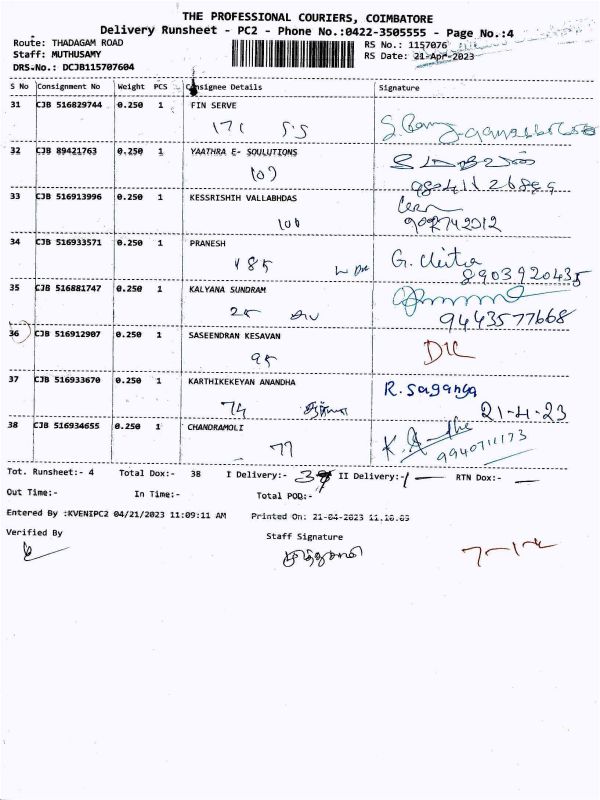 THE PROFESSIONAL COURIERS, COIMBATORE
Delivery Runsheet - PC2 - Phone No.:0422-3505555 - Page No.:4
Route: THADAGAM ROAD RS No.: 1157076
Staff: MUTHUSAMY RS Date: 21-Apr-2023
DRS.No.: DCJB115707604
S No Consignment No Weight PCS Consignee Details Signature
31 CJB 516829744 0.250 1 FIN SERVE
171 S.S
32 CJB 89421763 0.250 1 YAATHRA E- SOULUTIONS
107
33 CJB 516913996 0.250 1 KESSRISHIH VALLABHDAS
100 9092742012
34 CJB 516933571 0.250 1 PRANESH G. Chitra
85 8903920435
35 CJB 516881747 0.250 1 KALYANA SUNDRAM
25 9443577668
36 CJB 516912907 0.250 1 SASEENDRAN KESAVAN
95 D/C
37 CJB 516933670 0.250 1 KARTHIKEKEYAN ANANDHA R. Saganya
74 21-4-23
38 CJB 516934655 0.250 1 CHANDRAMOLI
77 9940711173
Tot. Runsheet:- 4 Total Dox:- 38 I Delivery:- 37 II Delivery:- 1 — RTN Dox:- —
Out Time:- In Time:- Total POD:-
Entered By :KVENIPC2 04/21/2023 11:09:11 AM Printed On: 21-04-2023
Verified By Staff Signature